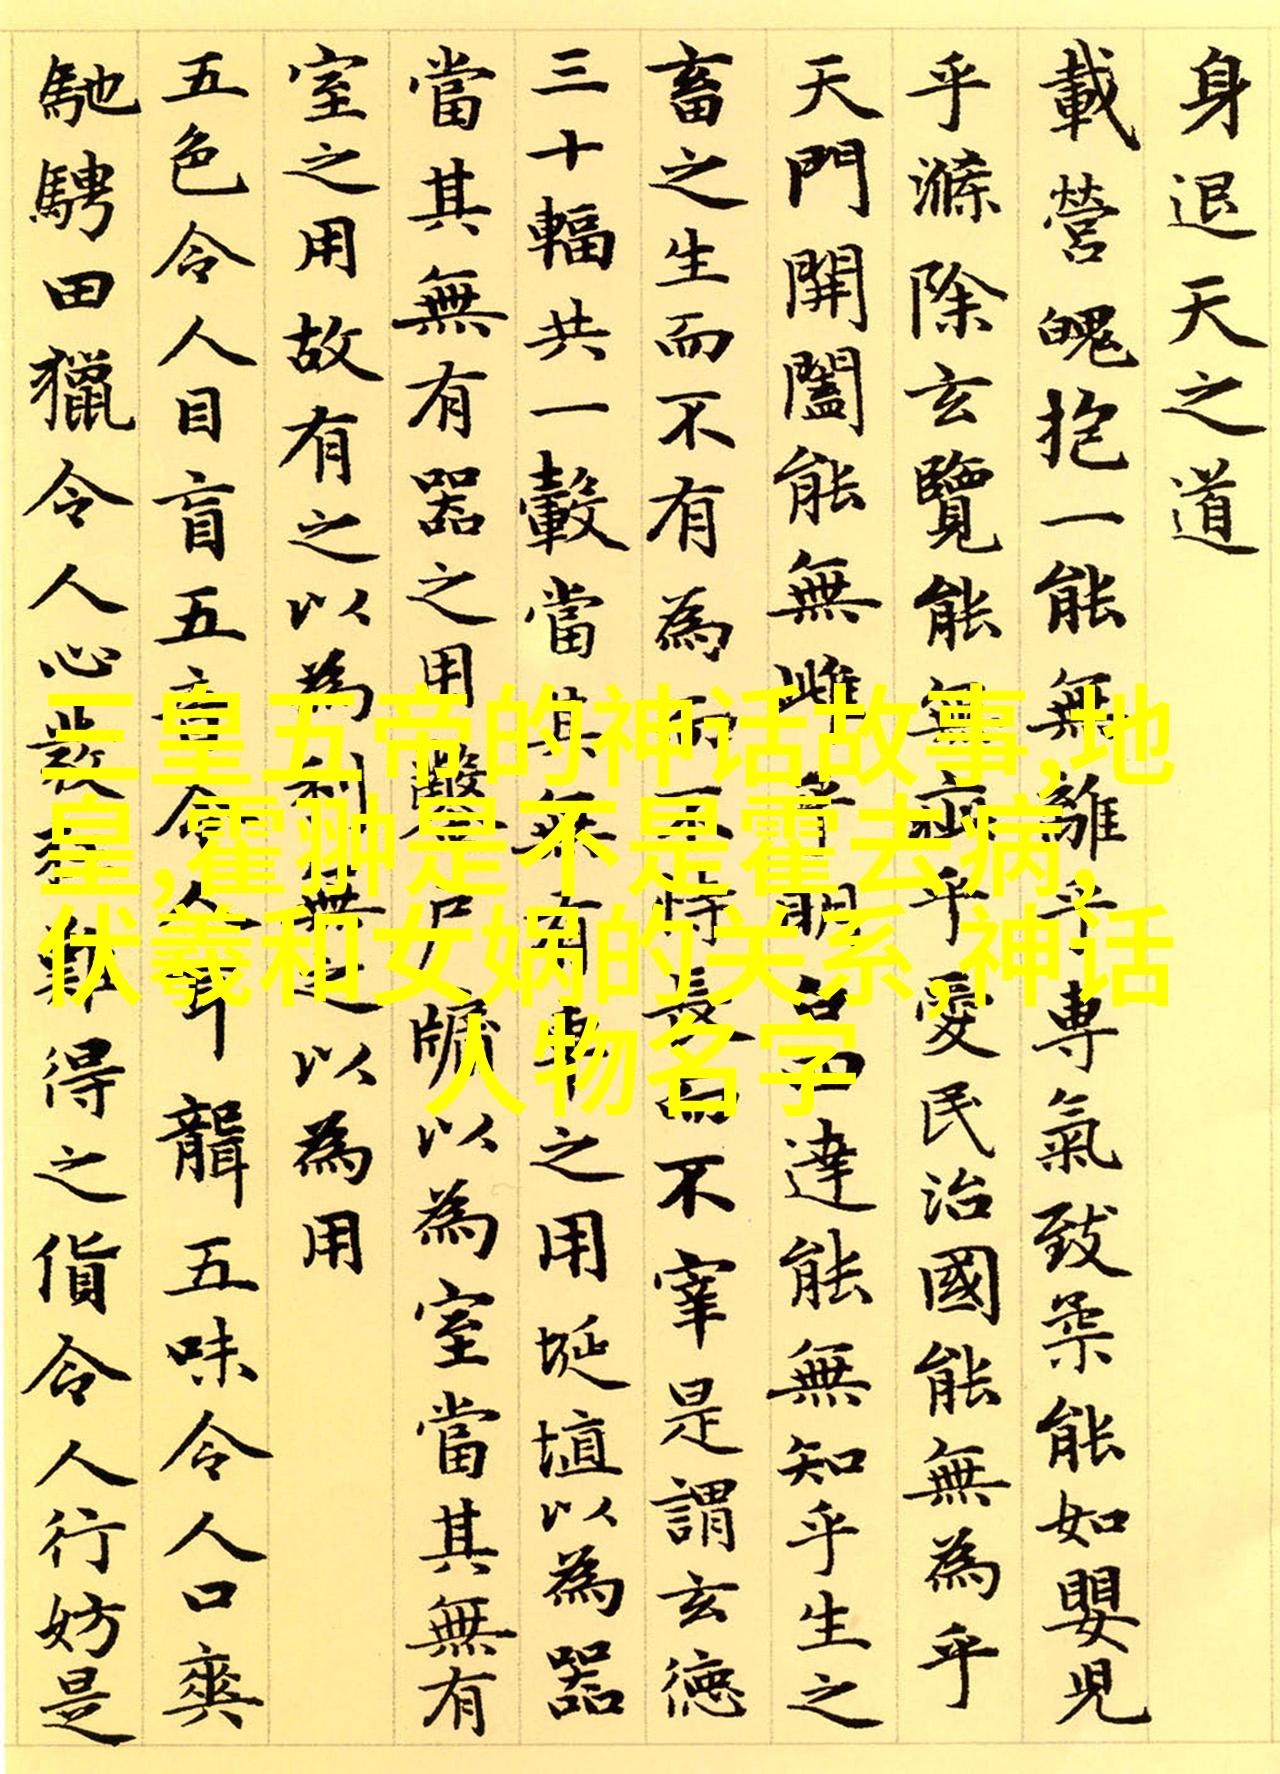 身退天之道
載營魄抱一能無離乎専氣致柔能如嬰児
乎滌除玄覽能無疵乎愛民治國能無為乎
天門開闔能無雌乎明白四達能無知乎生之
畜之生而不有為而不恃長而不宰是謂玄徳
三十輻共一轂當其無有車之用埏埴以為器
當其無有器之用鑿戶牖以為室當其無有
室之用故有之以為利無之以為用
五色令人目盲五音令人耳聾五味令人口爽
馳騁田獵令人心發狂難得之貨令人行妨是
三皇五帝的神话故事,地
皇,霍翀是不是霍去病,
伏羲和女娲的关系,神话
人物名字